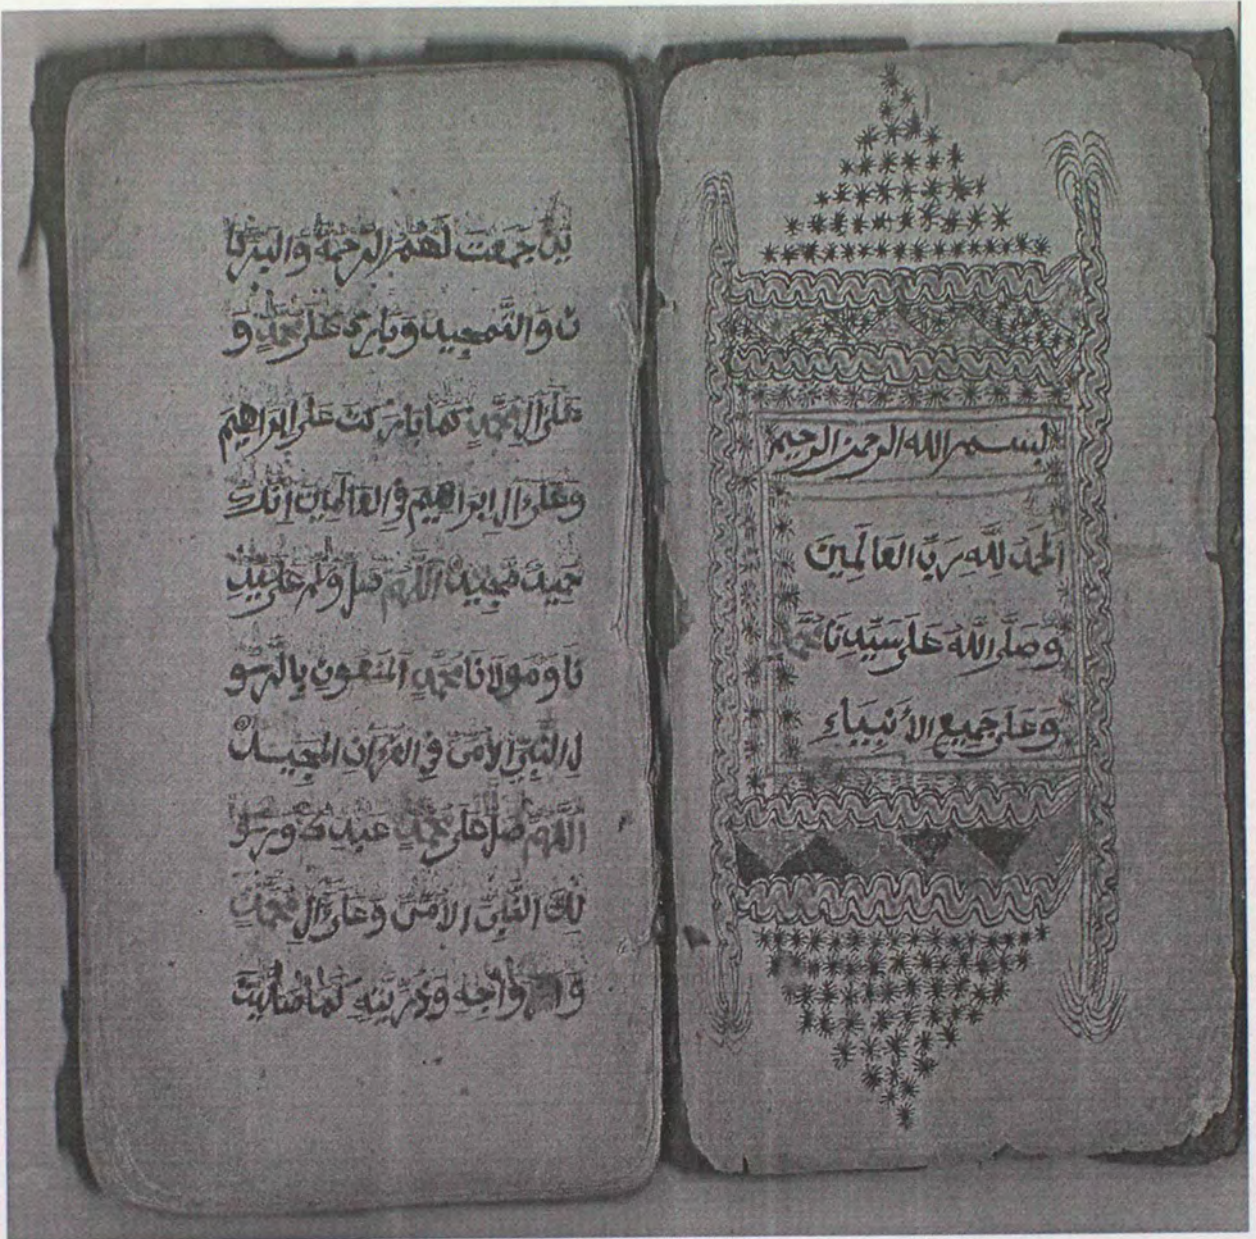 بسم الله الرحمن الرحيم
الحمد لله رب العالمين
وصلى الله على سيدنا محمد
وعلى جميع الأنبياء
ين جمعت لهم الرحمة
والتمجيد وبارك على محمد و
على ال محمد كما باركت على ابراهيم
وعلى ال ابراهيم في العالمين انك
حميد مجيد اللهم صل وسلم على سيد
نا ومولانا محمد المنعوت بالرسو
ل النبي الأمي في القرءان المجيد
اللهم صل على محمد عبدك ورسو
لك النبي الأمي وعلى ال محمد
وازواجه وذريته كما صليت